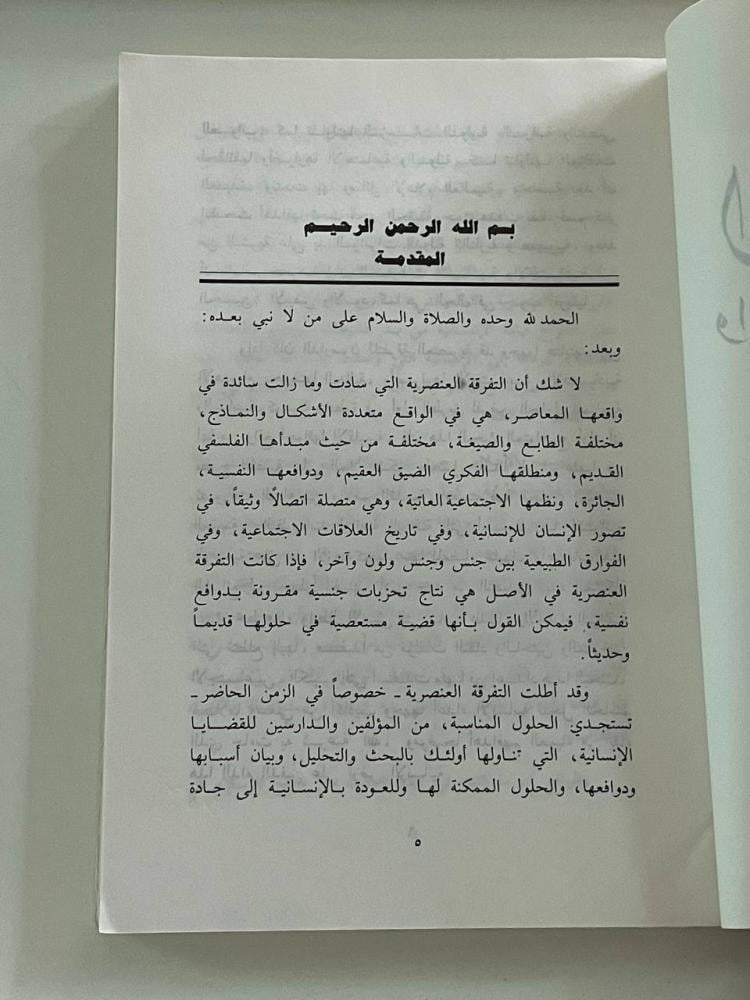 بسم الله الرحمن الرحيم
المقدمة
الحمد لله وحده والصلاة والسلام على من لا نبي بعده:
وبعد:
لا شك أن التفرقة العنصرية التي سادت وما زالت سائدة في
واقعها المعاصر، هي في الواقع متعددة الأشكال والنماذج،
مختلفة الطابع والصيغة، مختلفة من حيث مبدأها الفلسفي
القديم، ومنطلقها الفكري الضيق العقيم، ودوافعها النفسية،
الجائرة، ونظمها الاجتماعية العاتية، وهي متصلة اتصالاً وثيقاً، في
تصور الإنسان للإنسانية، وفي تاريخ العلاقات الاجتماعية، وفي
الفوارق الطبيعية بين جنس وجنس ولون وآخر، فإذا كانت التفرقة
العنصرية في الأصل هي نتاج تحزبات جنسية مقرونة بدوافع
نفسية، فيمكن القول بأنها قضية مستعصية في حلولها قديماً
وحديثاً.
وقد أطلت التفرقة العنصرية - خصوصاً في الزمن الحاضر -
تستجدي الحلول المناسبة، من المؤلفين والدارسين للقضايا
الإنسانية، التي تناولها أولئك بالبحث والتحليل، وبيان أسبابها
ودوافعها، والحلول الممكنة لها وللعودة بالإنسانية إلى جادة
٥